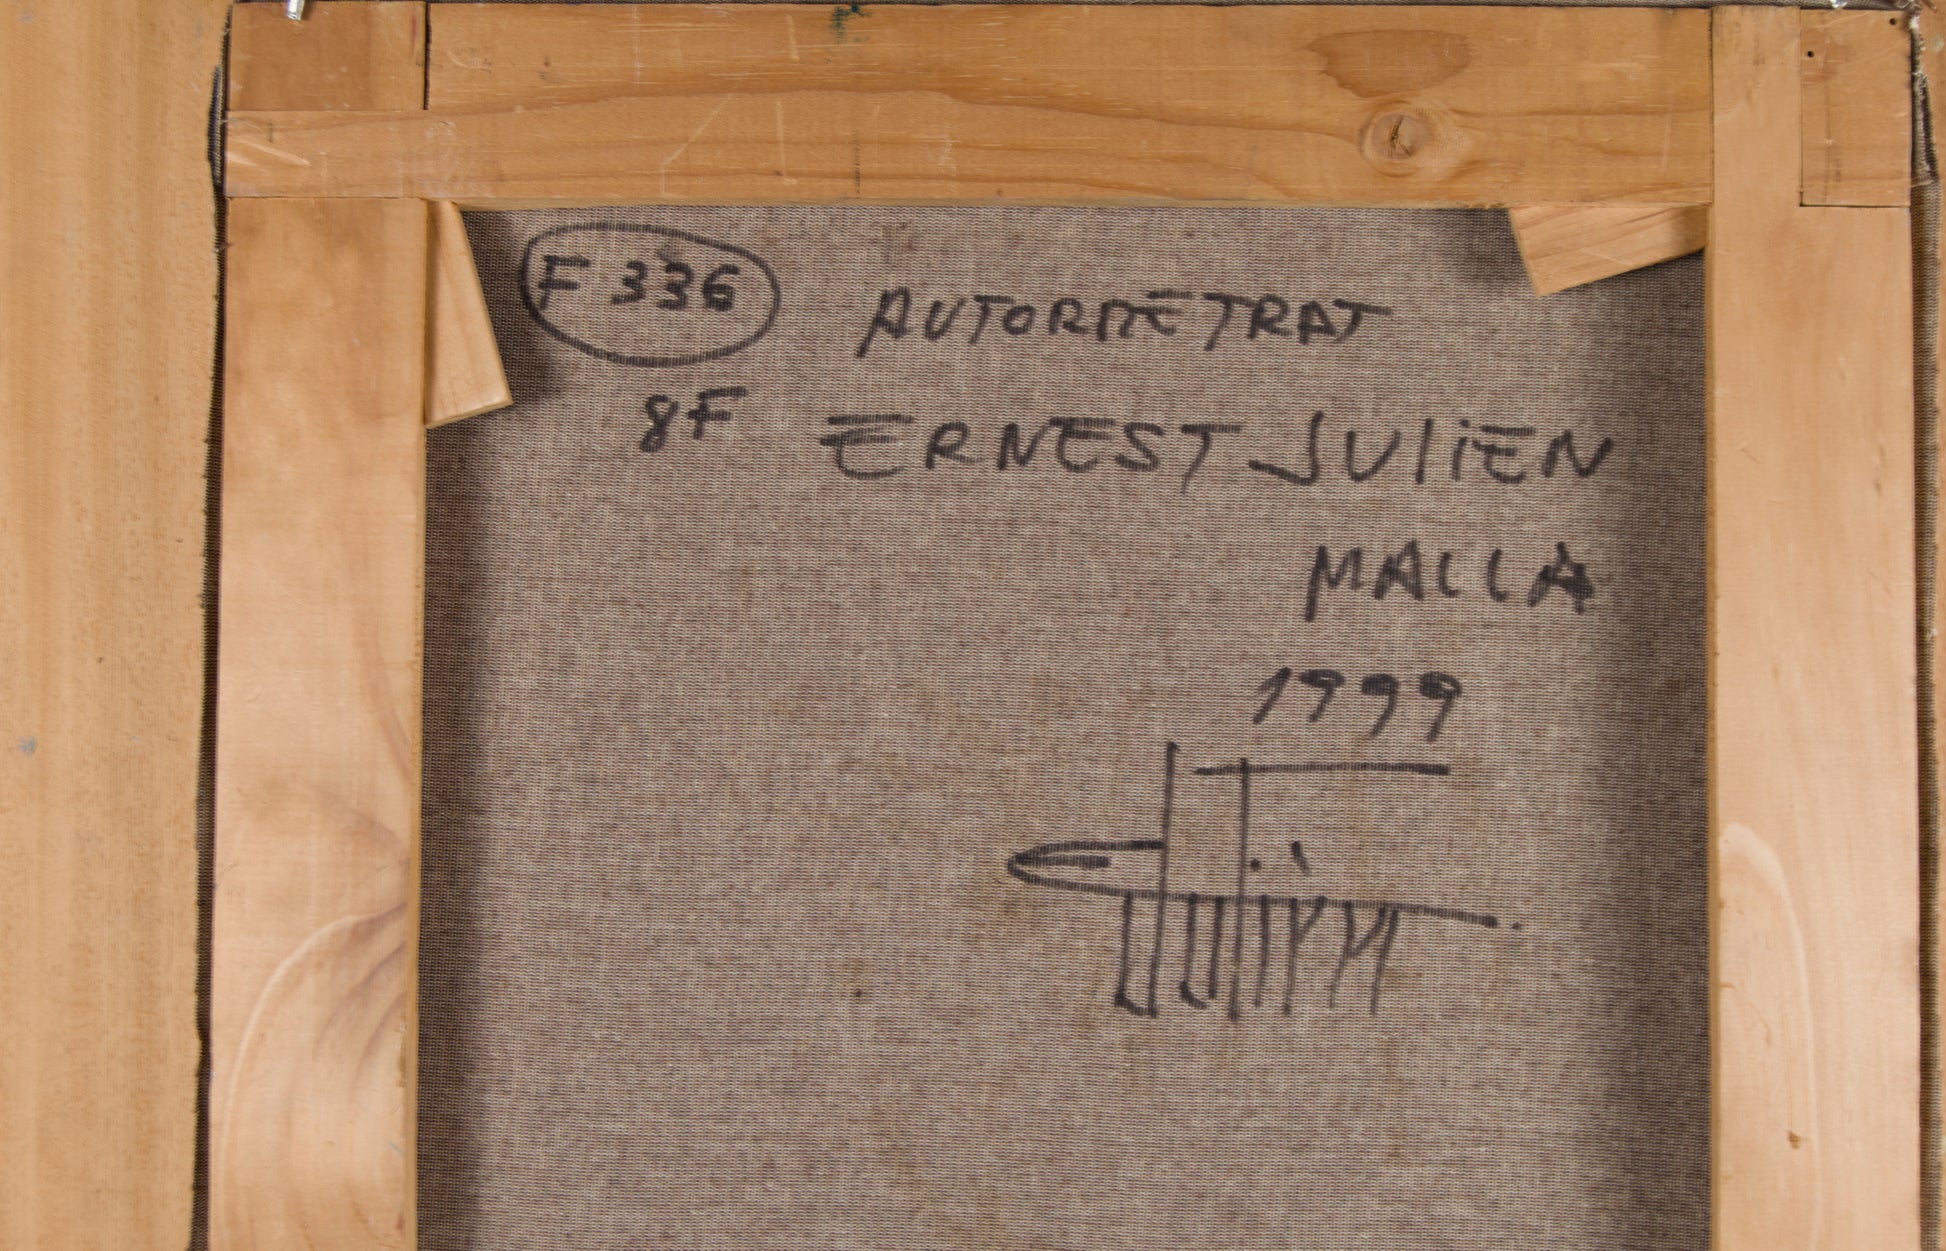 F 336
AUTORRETRAT
8F
ERNEST JULIEN
MALLA
1999